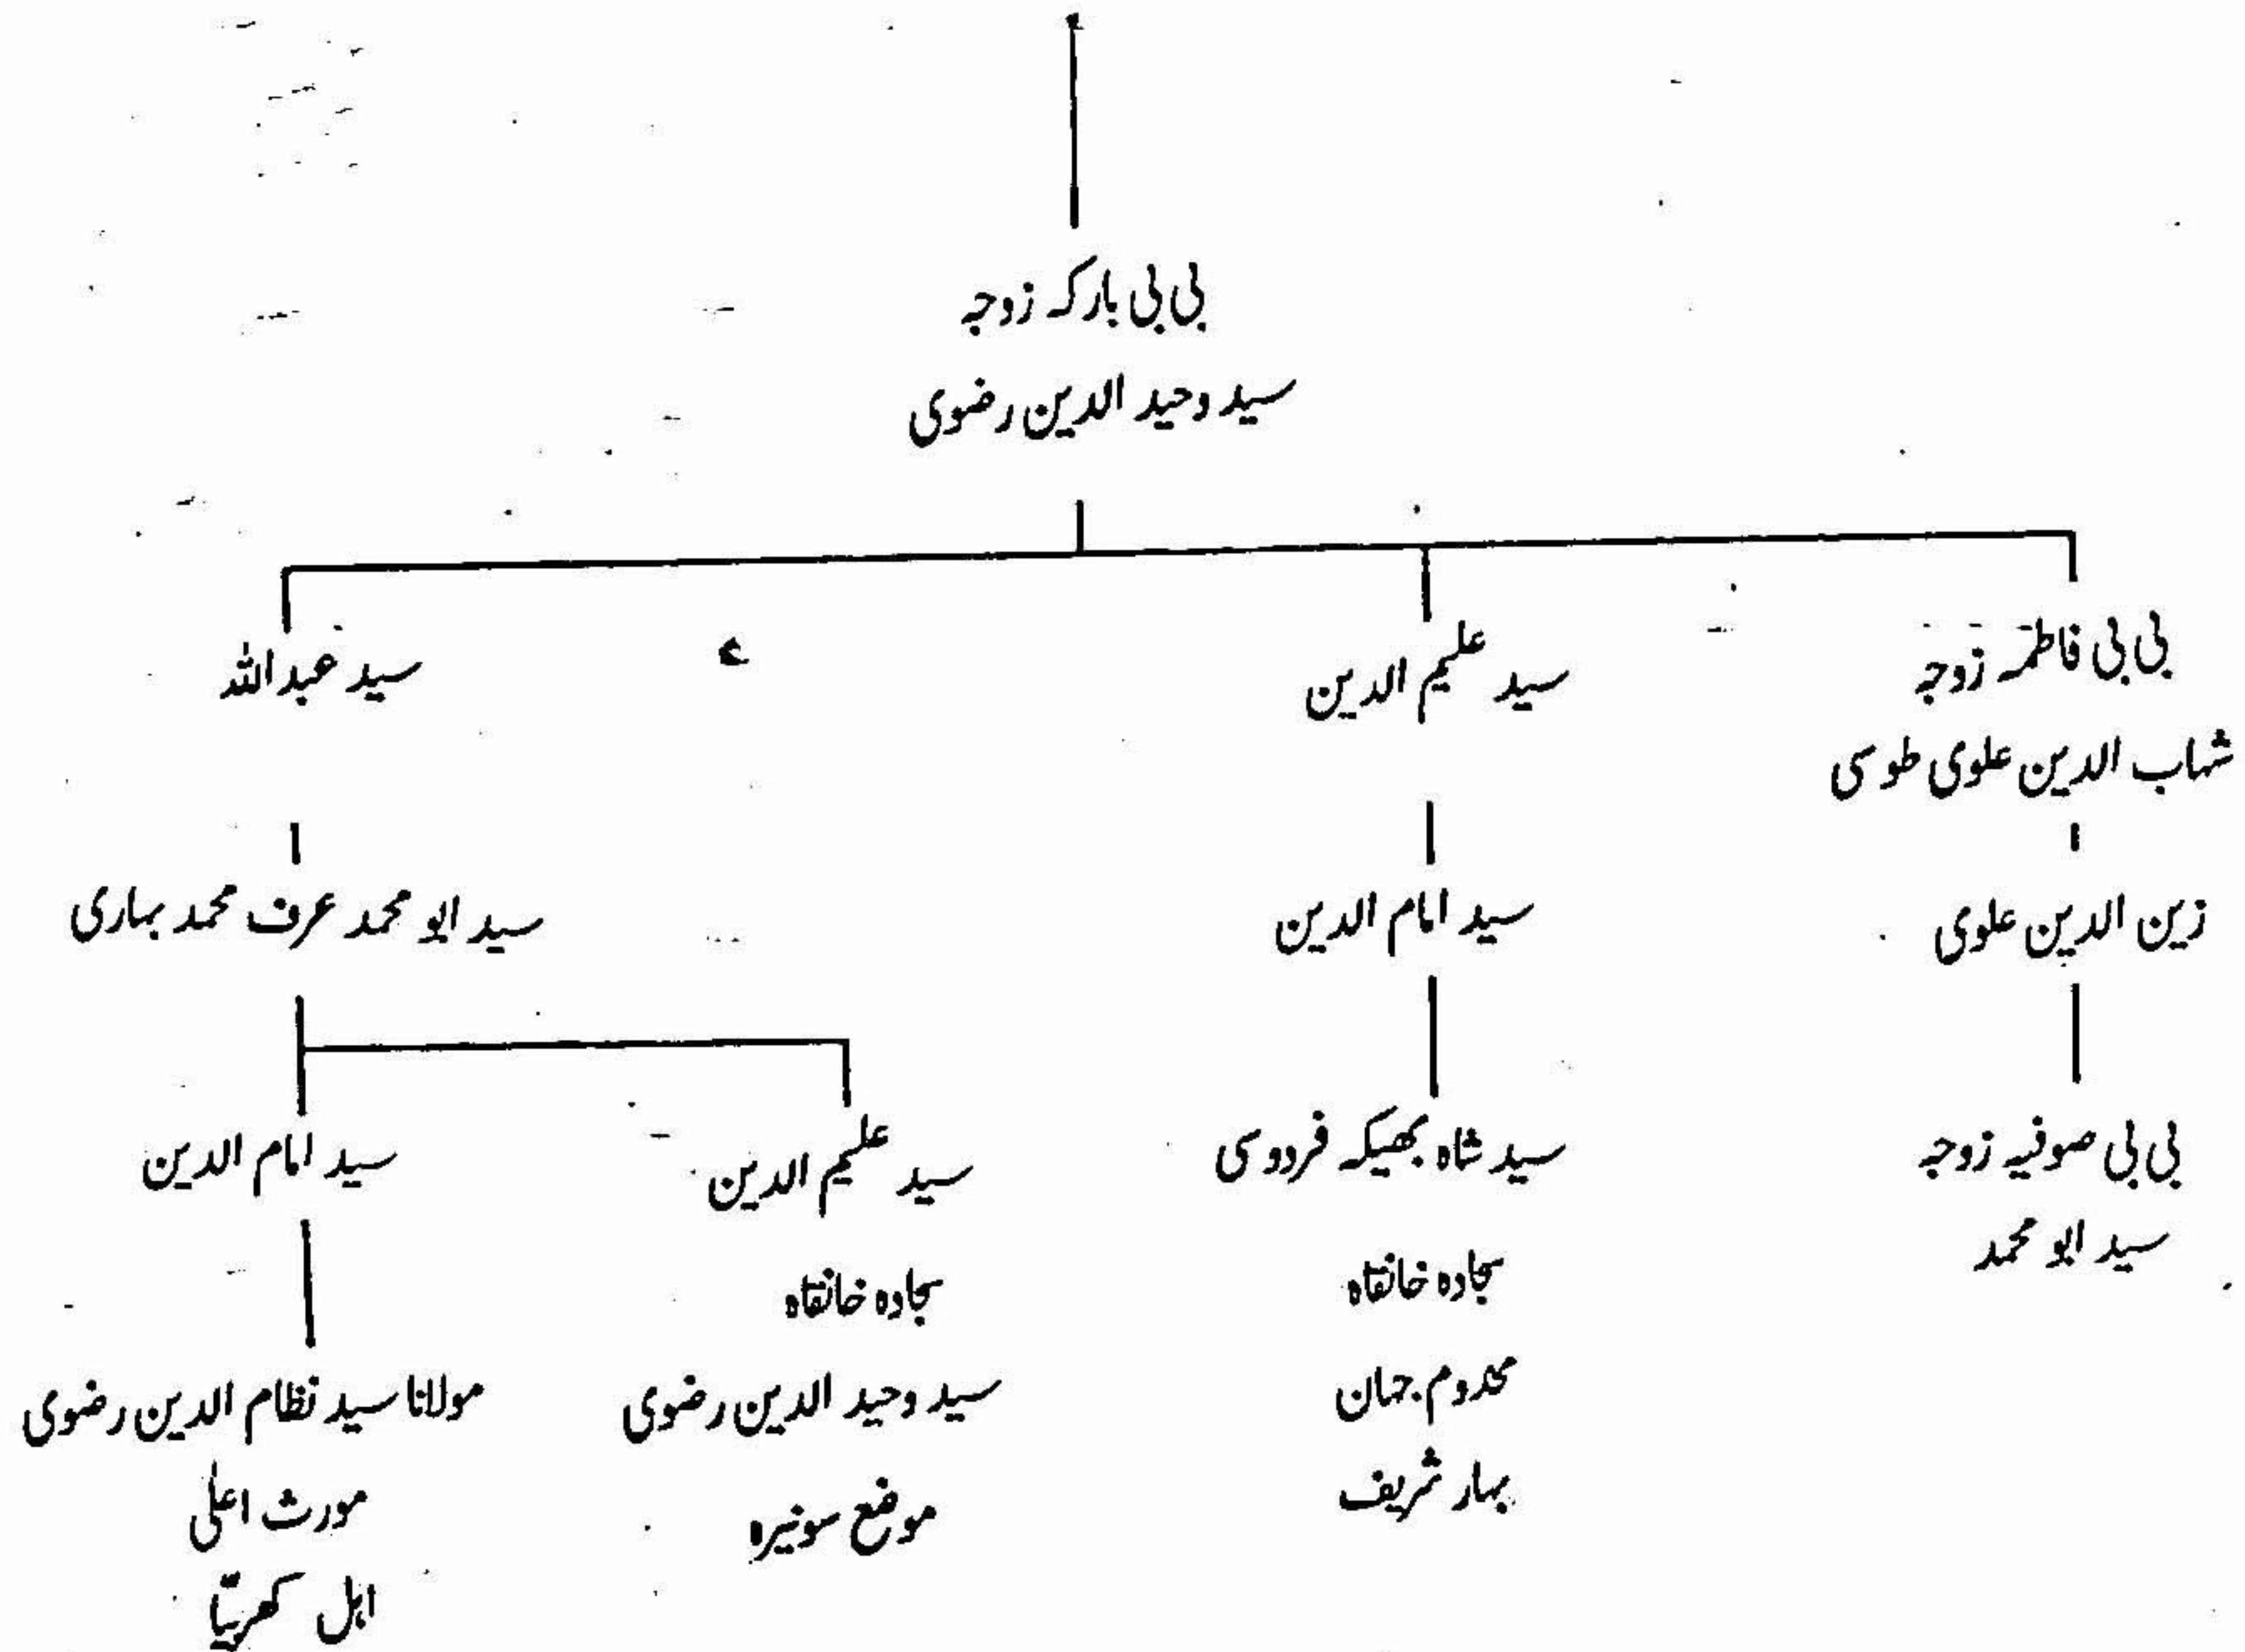 بی بی بارکہ زوجہ
سید وحید الدین رضوی
بی بی فاطمہ زوجہ
شہاب الدین علوی طوسی
زین الدین علوی
بی بی صوفیہ زوجہ
سید ابو محمد
سید علیم الدین
سید امام الدین
سید شاہ بھیکہ فردوسی
سجادہ خانقاہ
مخدوم جہان
بہار شریف
سید عبداللہ
سید ابو محمد عرف محمد بہاری
سید علیم الدین
سجادہ خانقاہ
سید وحید الدین رضوی
موضع سونیرہ
سید امام الدین
مولانا سید نظام الدین رضوی
مورث اعلی
اہل